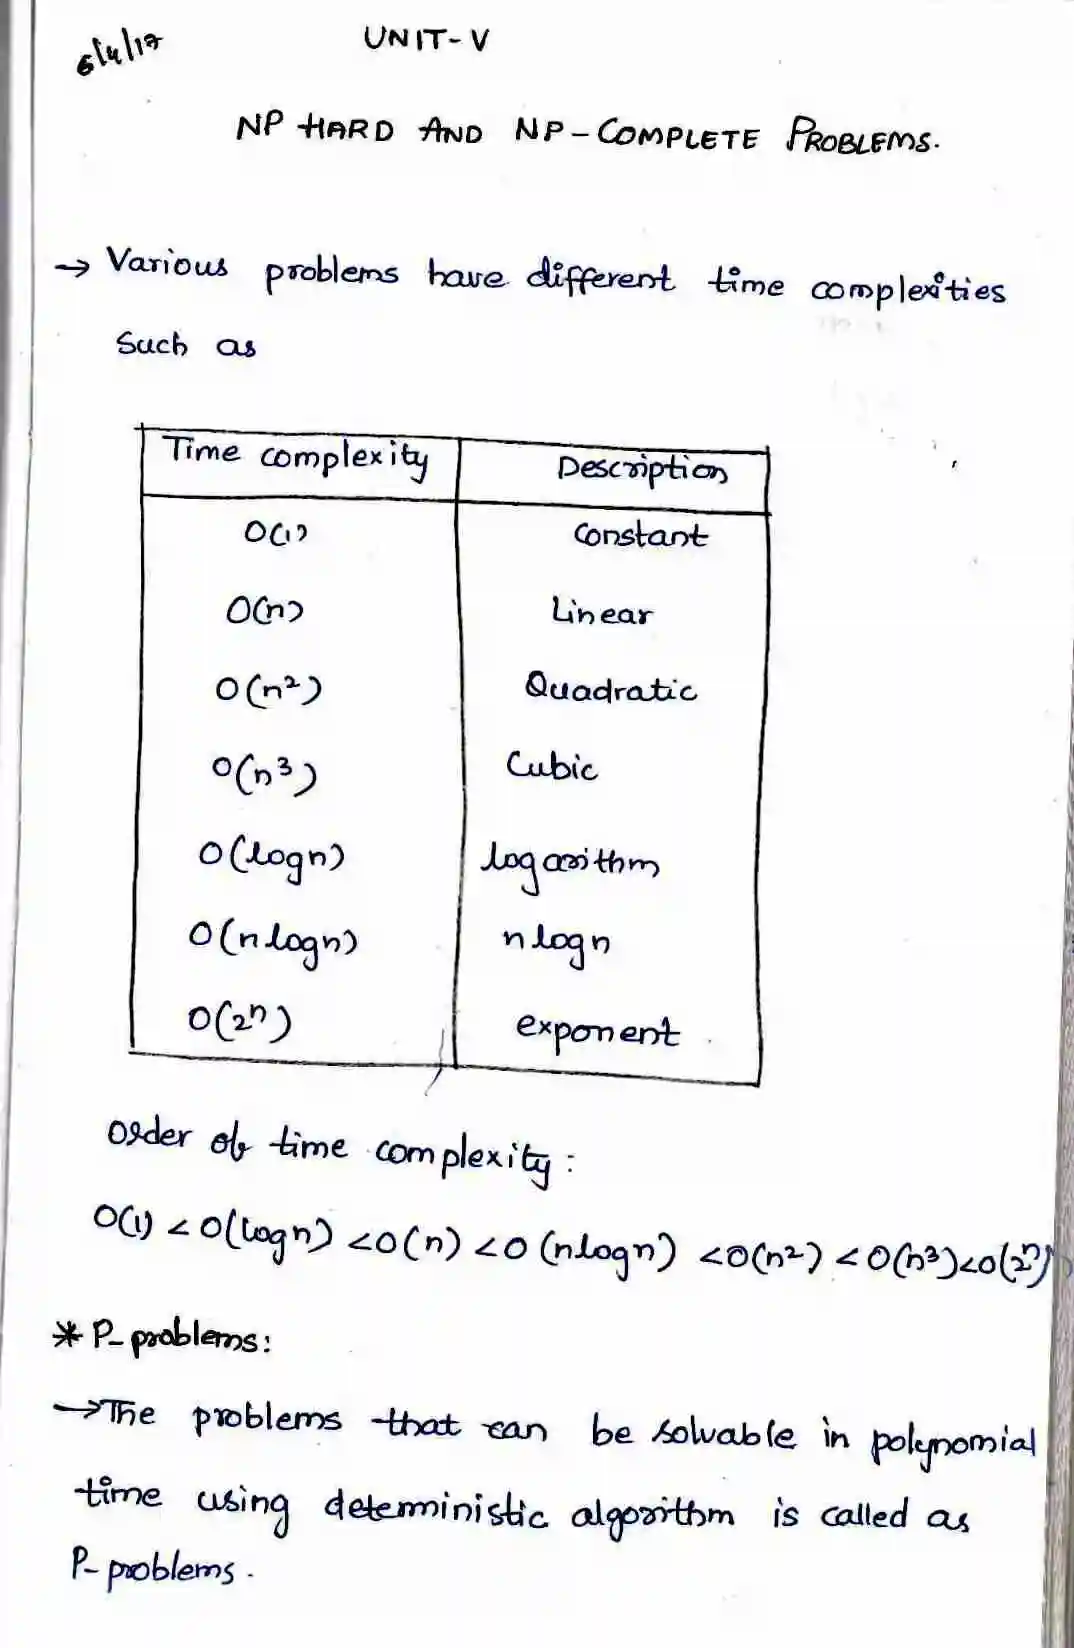 6/4/17
UNIT-V
NP HARD AND NP-COMPLETE PROBLEMS.
→ Various problems have different time complexities
Such as
Time complexity Description
O(1) Constant
O(n) Linear
O(n²) Quadratic
O(n³) Cubic
O(logn) logarithm
O(nlogn) nlogn
O(2ⁿ) exponent
Order of time complexity:
O(1) < O(logn) < O(n) < O(nlogn) < O(n²) < O(n³) < O(2ⁿ)
* P-problems:
→ The problems that can be solvable in polynomial
time using deterministic algorithm is called as
P-problems.